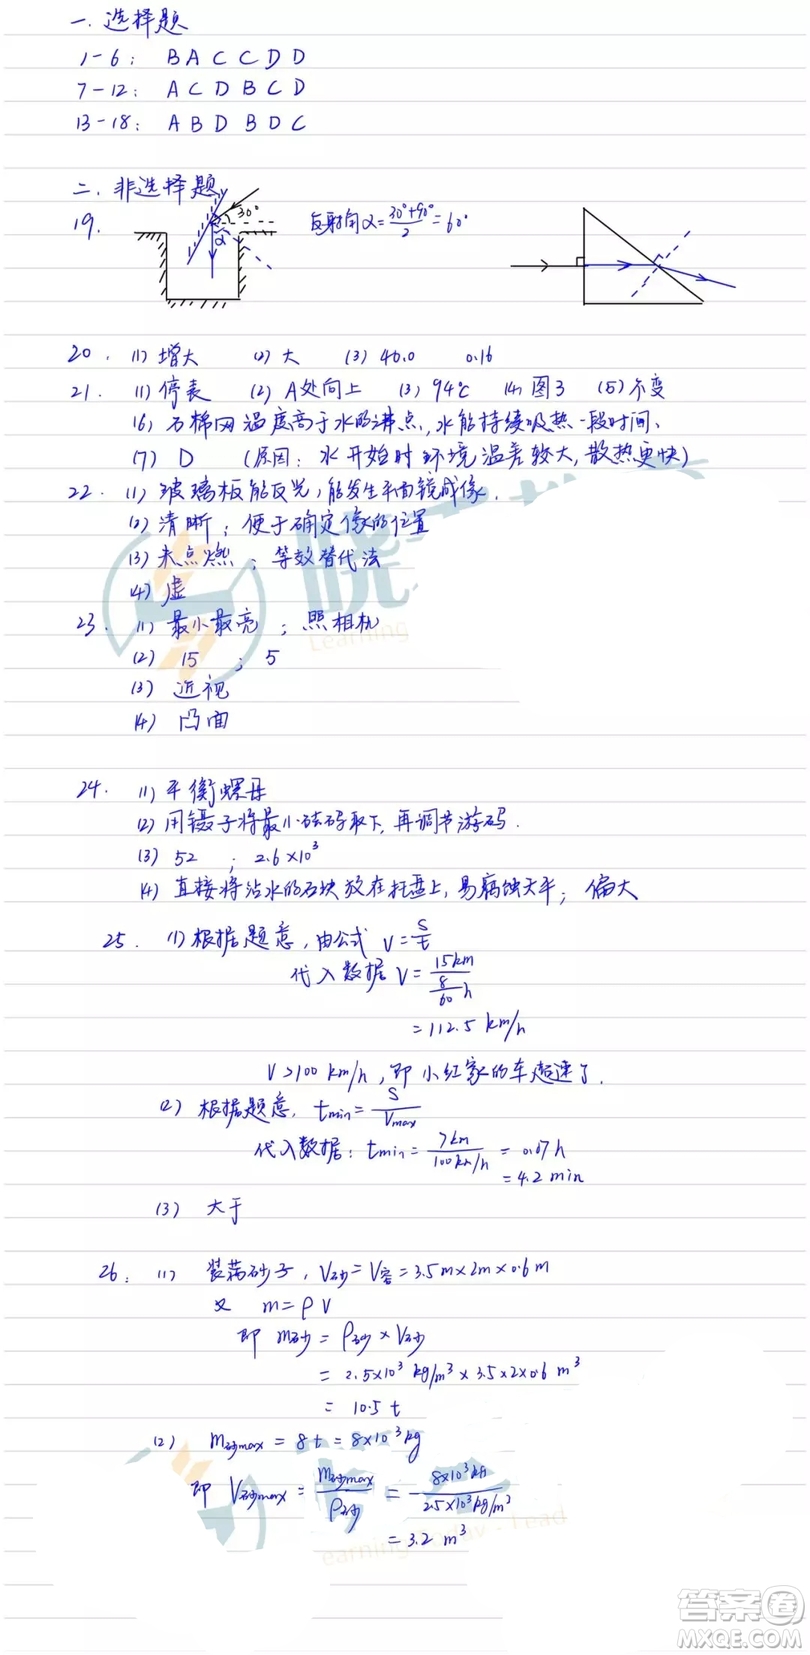 一. 选择题
1-6: B A C C D D
7-12: A C D B C D
13-18: A B D B D C
二. 非选择题
19. 30° α 反射角α=(30°+90°)/2=60°
20. (1) 增大 (2) 大 (3) 40.0 0.16
21. (1) 停表 (2) A处向上 (3) 94℃ (4) 图3 (5) 不变
(6) 石棉网温度高于水的沸点, 水能持续吸热一段时间、
(7) D (原因: 水开始时环境温差较大, 散热更快)
22. (1) 玻璃板能反光; 能发生平面镜成像.
(2) 清晰; 便于确定像的位置
(3) 未点燃; 等效替代法
(4) 虚
23. (1) 最小最亮; 照相机
(2) 15; 5
(3) 近视
(4) 凸面
24. (1) 平衡螺母
(2) 用镊子将最小砝码取下, 再调节游码.
(3) 52; 2.6×10³
(4) 直接将沾水的石块放在托盘上, 易腐蚀天平; 偏大
25. (1) 根据题意, 由公式 V=S/t
代入数据 V=15km/(8/60 h)
=112.5 km/h
V>100 km/h, 即小红家的车超速了.
(2) 根据题意, tmin=S/Vmax
代入数据: tmin=7km/(100km/h)=0.07h
=4.2 min
(3) 大于
26. (1) 装满砂子, V砂=V容=3.5m×2m×0.6m
又 m=ρV
即 m砂=ρ砂×V砂
=2.5×10³ kg/m³×3.5×2×0.6 m³
=10.5 t
(2) m砂max=8t=8×10³kg
即 V砂max=m砂max/ρ砂=8×10³kg/(2.5×10³kg/m³)
=3.2 m³
答案圈
MXQE.COM